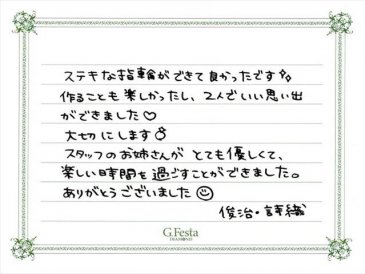 ステキな指輪ができて良かったです✨
作ることも楽しかったし、2人でいい思い出
ができました♡
大切にします💍
スタッフのお姉さんが とても優しくて、
楽しい時間を過ごすことができました。
ありがとうございました☺
俊治・詩織
G.Festa
DIAMOND